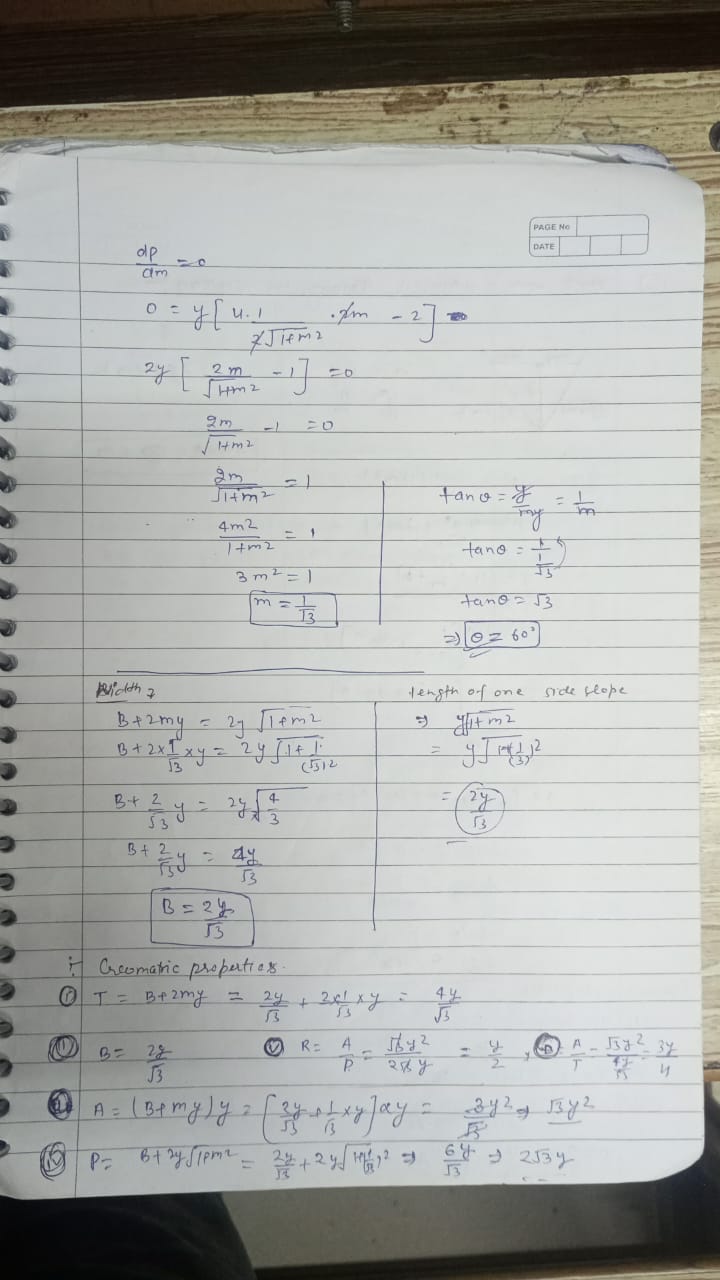 PAGE No
DATE
dp/dm = 0
0 = y [ 4·1/2√1+m2 · 2m - 2 ]
2y [ 2m/√1+m2 - 1 ] = 0
2m/√1+m2 - 1 = 0
2m/√1+m2 = 1
4m2/1+m2 = 1
3m2 = 1
m = 1/√3
tanθ = y/my = 1/m
tanθ = 1/(1/√3)
tanθ = √3
⇒ θ = 60°
Width
B+2my = 2y √1+m2
B+2×1/√3 ×y = 2y √1+1/(√3)2
B+ 2/√3 y = 2y × √4/3
B+ 2/√3 y = 4y/√3
B = 2y/√3
length of one side slope
⇒ y√1+m2
= y√1+(1/√3)2
= 2y/√3
Geomatric properties.
(i) T = B+2my = 2y/√3 + 2×1/√3 × y = 4y/√3
(ii) B = 2y/√3
(v) R = A/P = √3y2/2√3y = y/2, D = A/T = √3y2/(4y/√3) = 3y/4
(iii) A = (B+my)y = [2y/√3 + 1/√3 ×y] × y = 3y2/√3 ⇒ √3y2
(iv) P = B+2y√1+m2 = 2y/√3 + 2y√1+(1/√3)2 ⇒ 6y/√3 ⇒ 2√3y